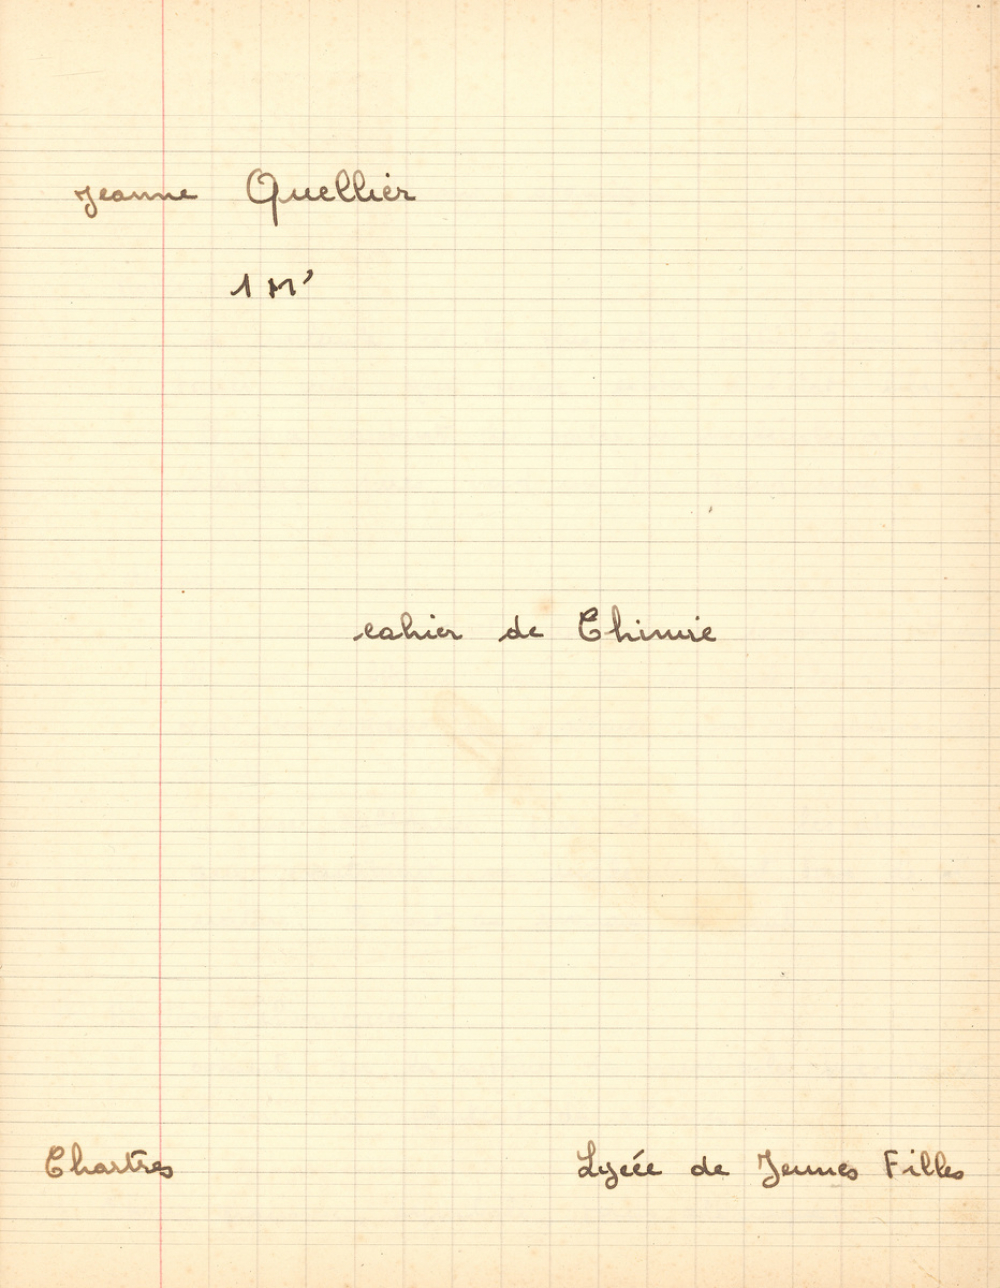 Jeanne Quellier
1 M'
cahier de Chimie
Chartres
Lycée de Jeunes Filles